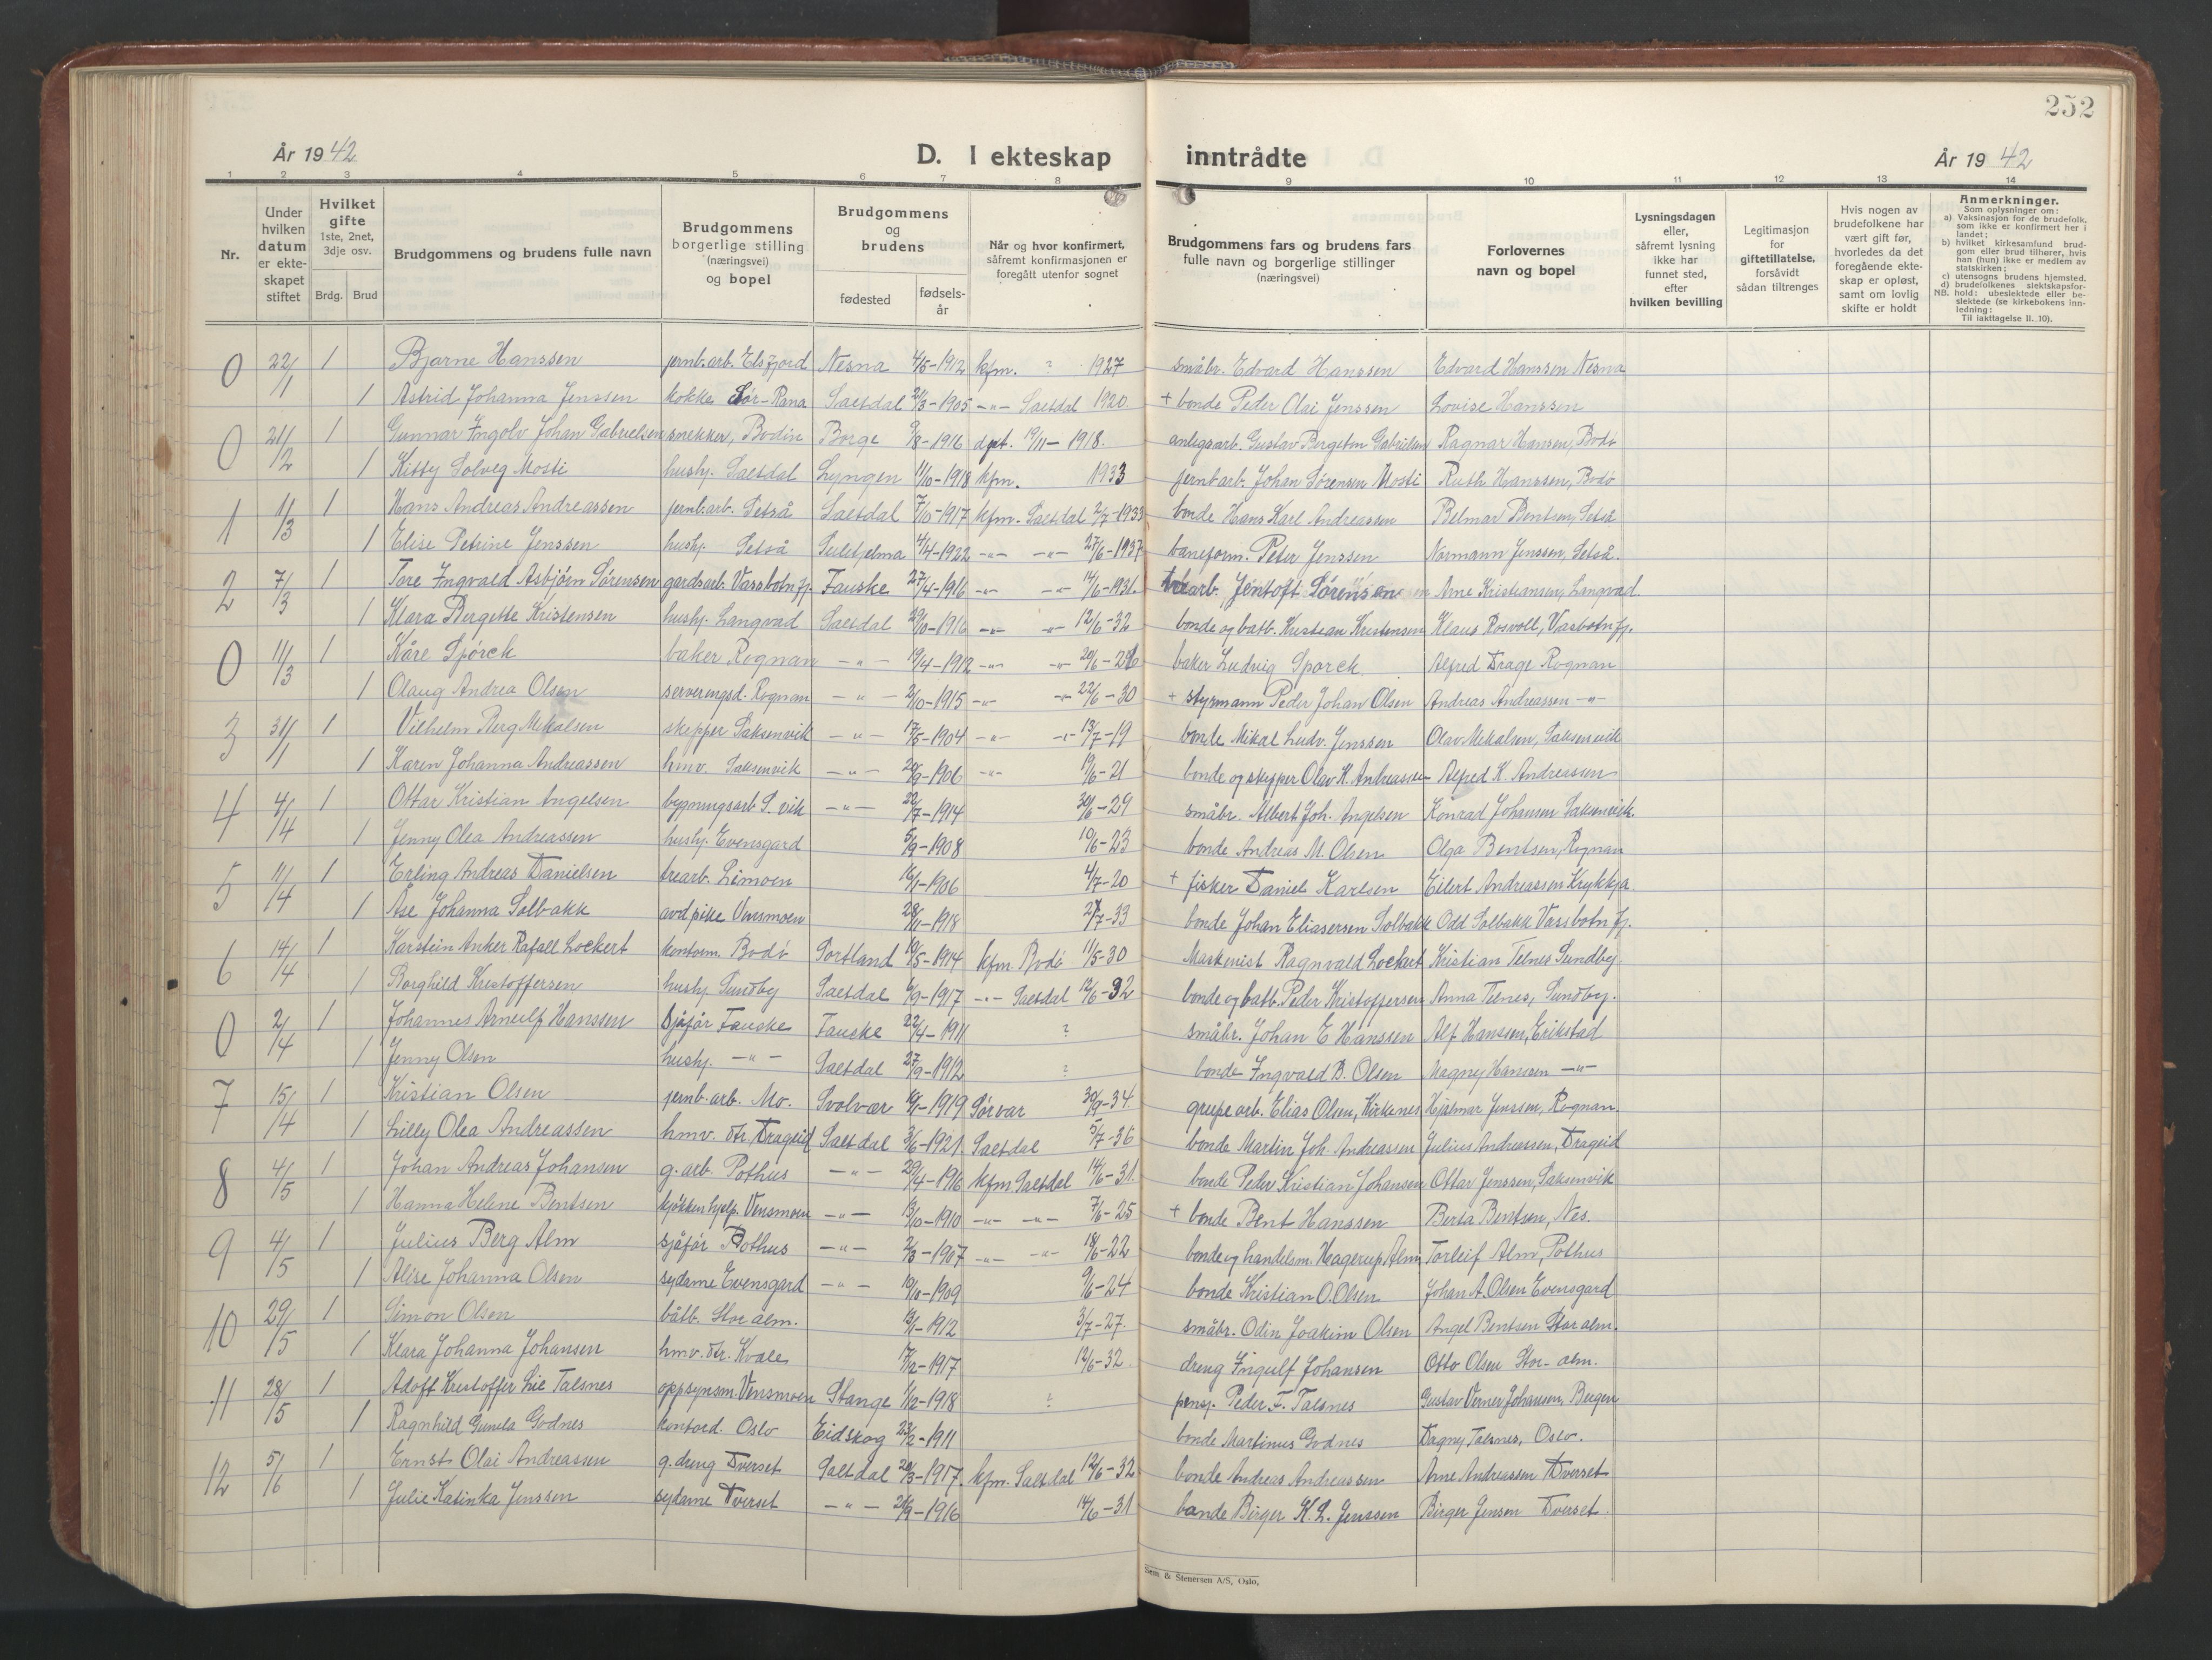 252
År 1942
D. I ekteskap inntrådte
År 1942
1 2 3 4 5 6 7 8 9 10 11 12 13 14
Nr.
Under hvilken datum er ekteskapet stiftet
Hvilket gifte 1ste, 2net, 3dje osv.
Brdg. Brud
Brudgommens og brudens fulle navn
Brudgommens borgerlige stilling (næringsvei) og bopel
Brudgommens og brudens
fødested
fødsels-år
Når og hvor konfirmert, såfremt konfirmasjonen er foregått utenfor sognet
Brudgommens fars og brudens fars fulle navn og borgerlige stillinger (næringsvei)
Forlovernes navn og bopel
Lysningsdagen eller, såfremt lysning ikke har funnet sted, efter hvilken bevilling
Legitimasjon for giftetillatelse, forsåvidt sådan tiltrenges
Hvis nogen av brudefolkene har vært gift før, hvorledes da det foregående ekteskap er opløst, samt om lovlig skifte er holdt
Anmerkninger.
Som oplysninger om:
a) Vaksinasjon for de brudefolk, som ikke er konfirmert her i landet;
b) hvilket kirkesamfund brudgom eller brud tilhører, hvis han (hun) ikke er medlem av statskirken;
c) utensogns brudens hjemsted.
d) brudefolkenes slektskapsforhold: ubeslektede eller beslektede (se kirkebokens innledning:
NB.
Til iakttagelse II. 10).
0 22/1 1 Bjarne Hanssen jernb.arb. Elsfjord Nesna 4/5-1912 kfm. ? 1927 småbr. Edvard Hanssen Edvard Hanssen Nesna
1 Astrid Johanna Jenssen kokke Sør-Rana Saltdal 21/3-1905 -"- Saltdal 1920. + bonde Peder Olai Jenssen Lovise Hanssen
0 21/2 1 Gunnar Ingolv Johan Gabrielsen snekker, Bodin Borge 9/8-1916 døpt. 19/11-1918. anlegsarb. Gustav Bergeton Gabrielsen Ragnar Hansen, Bodø
1 Kitty Solveg Mosti hushj. Saltdal Lyngen 11/10-1918 kfm. 1933 jernbarb. Johan Sørensen Mosti Ruth Hanssen, Bodø
1 1/3 1 Hans Andreas Andreassen jernb.arb. Setså Saltdal 7/10-1917 kfm. Saltdal 2/7-1933 bonde Hans Karl Andreassen Belmar Bentsen, Setså
1 Elise Petrine Jenssen hushj. Setså Sulitjelma 4/4-1922 -"- -"- 27/6-1937 baneform. Peter Jenssen Normann Jenssen, Setså.
2 7/3 1 Tore Ingvald Asbjörn Sörensen gardsarb. Vassbotnfj. Fauske 27/4-1916 -"- -"- 14/6-1931. trearb. Jentoft Sörensen Arne Kristiansen, Langvad.
1 Klara Bergette Kristensen hushj. Langvad Saltdal 29/10-1916 -"- -"- 12/6-32 bonde og båtb. Kristian Kristensen Klaus Rosvoll, Vasbotnfj.
0 11/3 1 Kåre Spörck baker Rognan -"- 19/4-1912 -"- -"- 20/6-26 baker Ludvig Sporck Alfred Drage Rognan
1 Olaug Andrea Olsen serveringsd. Rognan -"- 2/10-1915 -"- -"- 22/6-30 + styrmann Peder Johan Olsen Andreas Andreassen -"-
3 31/1 1 Vilhelm Berg Mikalsen skipper Saksenvik -"- 17/5-1904 -"- -"- 13/7-19 bonde Mikal Ludv. Jenssen Olav Mikalsen, Saksenvik
1 Karen Johanna Andreassen hmv. Saksenvik -"- 20/9-1906 -"- 19/6-21 bonde og skipper Olav K. Andreassen Alfred K. Andreassen
4 4/4 1 Ottar Kristian Angelsen bygningsarb. S. vik -"- 22/7-1914 30/6-29 småbr. Albert Joh. Angelsen Konrad Johansen Saksenvik.
1 Jenny Olea Andreassen hushj. Evensgard 5/9-1908 10/6-23 bonde Andreas M. Olsen Olga Bentsen, Rognan
5 11/4 1 Erling Andreas Danielsen trearb. Limoen 16/1-1906 4/7-20 + fisker Daniel Karlsen Eilert Andreassen Krykkja
1 Åse Johanna Solbakk avd pike Vensmoen 28/11-1918 2/7-33 bonde Johan Eliasersen Solbakk Odd Solbakk Vassbotnfj.
6 14/4 1 Karstein Anker Rafael Lockert kontorm. Bodö Portland 10/5-1914 kfm Bodö 11/5-30 Maskinist Ragnvald Lockert Kristian Telnes Sundby
1 Borghild Kristoffersen hushj. Sundby Saltdal 6/9-1917 -"- Saltdal 12/6-32 bonde og båtb. Peder Kristoffersen Anna Telnes, Sundby.
0 2/4 1 Johannes Arnulf Hanssen Sjåför Fauske Fauske 22/4-1911 ? småbr. Johan E Hanssen Alf Hansen, Erikstad
1 Jenny Olsen hushj. -"- Saltdal 27/9-1912 ? bonde Ingvald B. Olsen Magny Hanssen -"-
7 15/4 1 Kristian Olsen jernb.arb. Mo. Svolvær 10/1-1919 Sörvær 30/9-34. grupearb. Elias Olsen, Kirkenes Hjalmar Jenssen, Rognan.
1 Lilly Olea Andreassen hmv. dtr. Drageid Saltdal 3/6-1921. Saltdal 5/7-36 bonde Martin Joh. Andreassen Julius Andreassen, Drageid
8 4/5 1 Johan Andreas Johansen g. arb. Pothus -"- 29/4-1916 kfm. Saltdal 14/6-31. bonde Peder Kristian Johansen Ottar Jenssen, Saksenvik
1 Hanna Helene Bentsen kjökkenhjelp. Vensmoen -"- 13/10-1910 -"- -"- 7/6-25 + bonde Bent Hanssen Berta Bentsen, Nes.
9 4/5 1 Julius Berg Alm sjåför Pothus -"- 2/3-1907 -"- -"- 18/6-22 bonde og handelsm. Hagerup Alm Torleif Alm, Pothus
1 Alise Johanna Olsen sydame Evensgard -"- 10/11-1909 9/6-24 bonde Kristian O. Olsen Johan A. Olsen Evensgard
10 29/5 1 Simon Olsen båtb. Storalm. 13/1-1912 3/7-27. småbr. Odin Joakim Olsen Angel Bentsen Storalm.
1 Klara Johanna Johansen hmv. dtr. Kvæle 17/2-1917 12/6-32. dreng Ingulf Johansen Otto Olsen Stor-alm.
11 28/5 1 Adolf Kristoffer Lie Talsnes oppsynsm. Vensmoen Stange 1/12-1918 ? pensj. Peder F. Talsnes Gustav Verner Johansen, Bergen
1 Ragnhild Gunila Godnes kontord. Oslo Eidskog 23/2-1911 bonde Martinus Godnes Dagny Talsnes, Oslo.
12 5/6 1 Ernst Olai Andreassen g. dreng Tverset Saltdal 20/3-1917. kfm. Saltdal 12/6-32 bonde Andreas Andreassen Arne Andreassen Tverset
1 Julie Katinka Jenssen sydame Tverset -"- 21/9-1916 14/6-31 bonde Birger K. L. Jenssen Birger Jensen Tverset.
Sem & Stenersen A/S, Oslo.